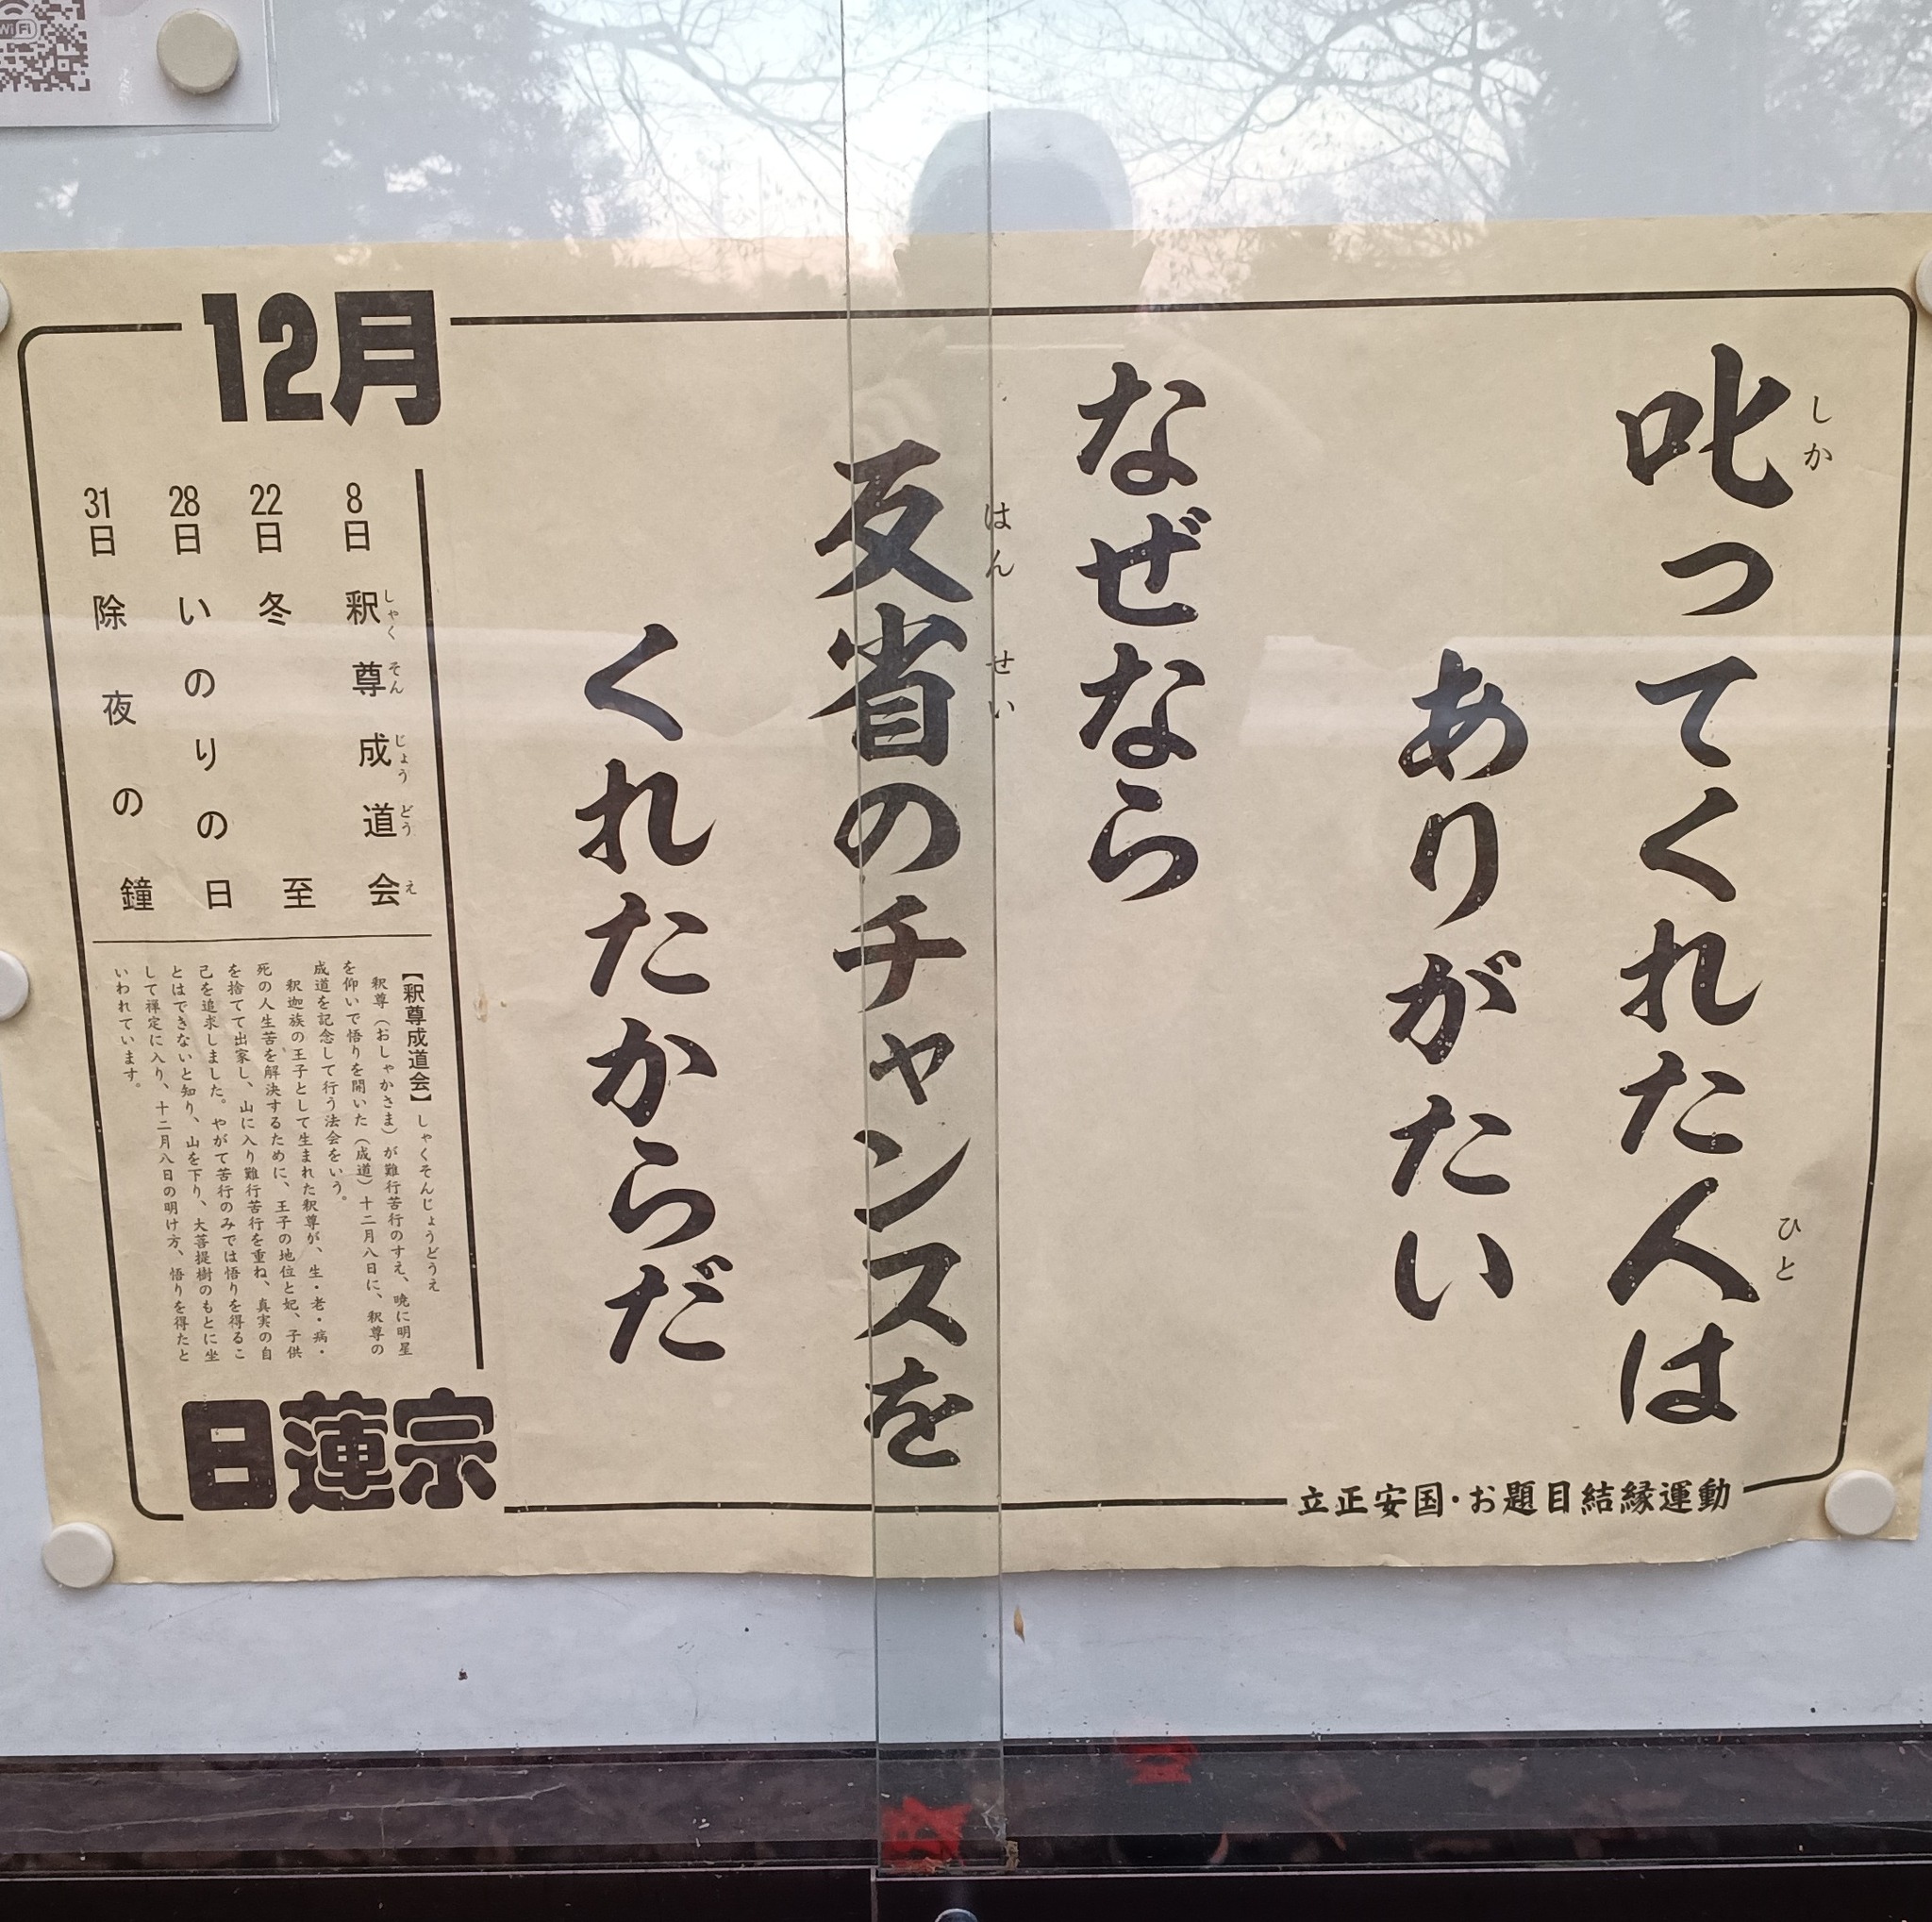 叱ってくれた人は
しか
ひと
ありがたい
なぜなら
反省のチャンスを
はんせい
くれたからだ
12月
8日 釈尊成道会
しゃくそんじょうどうえ
22日 冬至
28日 いのりの日
31日 除夜の鐘
【釈尊成道会】しゃくそんじょうどうえ
釈尊（おしゃかさま）が難行苦行のすえ、暁に明星
を仰いで悟りを開いた（成道）十二月八日に、釈尊の
成道を記念して行う法会をいう。
釈迦族の王子として生まれた釈尊が、生・老・病・
死の人生苦を解決するために、王子の地位と妃、子供
を捨てて出家し、山に入り難行苦行を重ね、真実の自
己を追求しました。やがて苦行のみでは悟りを得るこ
とはできないと知り、山を下り、大菩提樹のもとに坐
して禅定に入り、十二月八日の明け方、悟りを得たと
いわれています。
日蓮宗
立正安国・お題目結縁運動
WiFi